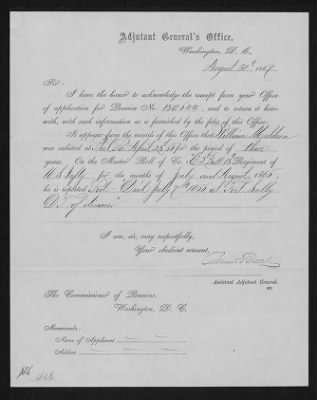 Adjutant General's Office,
Washington, D. C.
August 30th 1867
Sir:
I have the honor to acknowledge the receipt from your Office
of application for Pension No. 150544, and to return it here-
with, with such information as is furnished by the files of this Office.
It appears from the records of this Office that William
was enlisted at on April 25, for the period of three
years. On the Muster Roll of Co. 2" Batt 15" Regiment of
U.S. Infty for the months of July and August, 1865,
he is reported Died July 7th 1865 at Fort
D.T. of
I am, sir, very respectfully,
Your obedient servant,
Assistant Adjutant General.
The Commissioner of Pensions,
Washington, D. C.
Memoranda:
Name of Applicant
Address